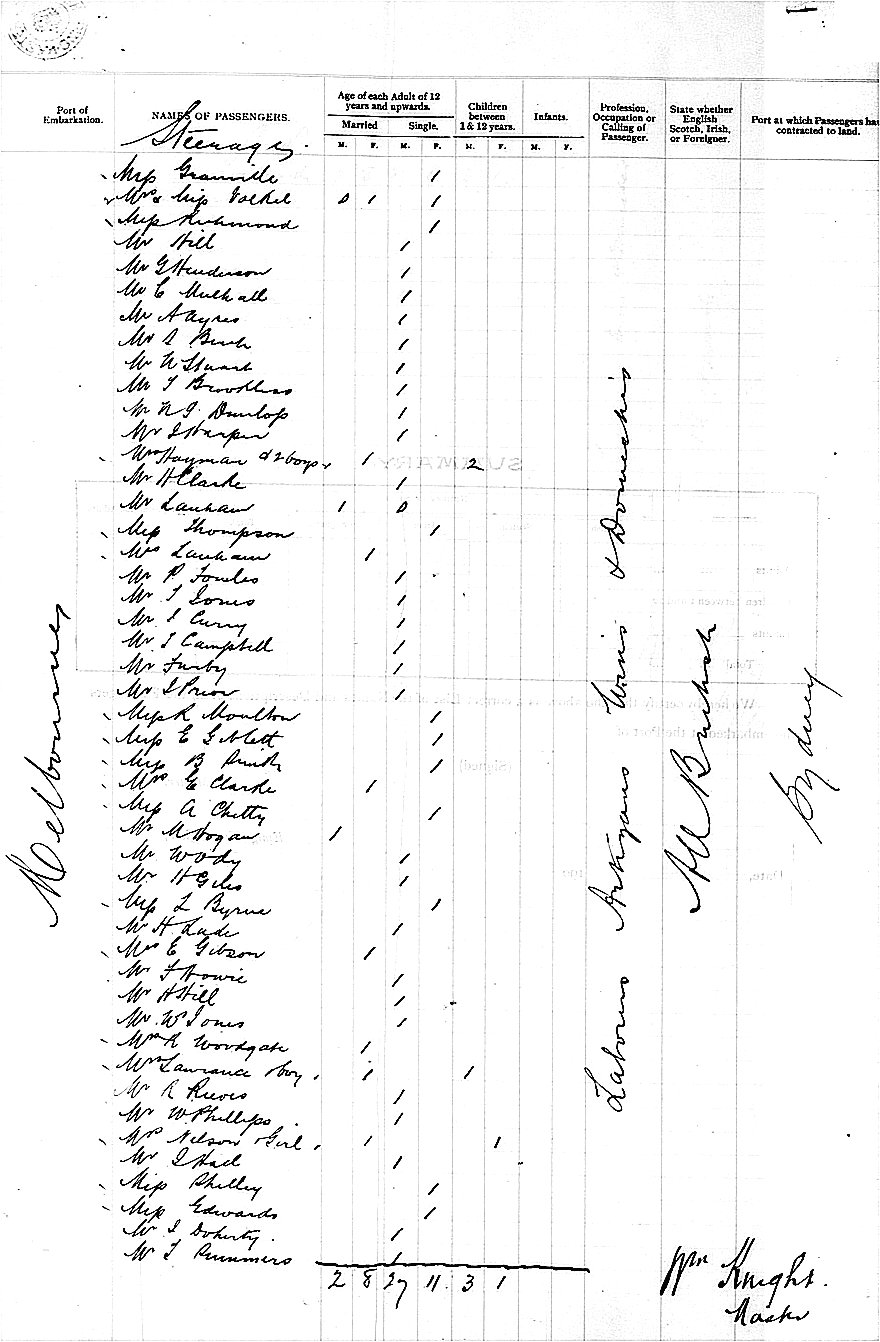 Port of Embarkation.
NAMES OF PASSENGERS.
Age of each Adult of 12 years and upwards.
Married
Single.
M. F. M. F.
Children between 1 & 12 years.
M. F.
Infants.
M. F.
Profession, Occupation or Calling of Passenger.
State whether English Scotch, Irish, or Foreigner.
Port at which Passengers have contracted to land.
Steerage
Miss Granville 1
Mrs & Miss Vockel 0 1 1
Miss Richmond 1
Mr Hill 1
Mr G Henderson 1
Mr C Mulhall 1
Mr A Ayres 1
Mr 1
Mr W Stuart 1
Mr T 1
Mr N J Dunlop 1
Mr J Harper 1
Mrs Hayman & 2 boys 1 2
Mr H Clarke 1
Mr Lanham 1 0
Miss Thompson 1
Mrs Lanham 1
Mr P Fowles 1
Mr T Jones 1
Mr J Curry 1
Mr J Campbell 1
Mr Furby 1
Mr J Prior 1
Miss R Moulton 1
Miss E Giblett 1
Miss B Smith 1
Mrs E Clarke 1
Miss A Chitty 1
Mr M Hogan 1
Mr Woody 1
Mr H Giles 1
Miss L Byrne 1
Mr H Lade 1
Mrs E Gibson 1
Mr F Howie 1
Mr H Hill 1
Mr W Jones 1
Mrs R Woodgate 1
Mrs Lawrance & boy 1 1
Mr R Reeves 1
Mr W Phillips 1
Mrs Nelson & Girl 1 1
Mr J Hael 1
Miss Shelley 1
Miss Edwards 1
Mr J Doherty 1
Mr T Summers 1
2 8 27 11 3 1
Melbourne
Labourers Artizans Wives & Domestics
All British
Sydney
Wm Knight.
Master